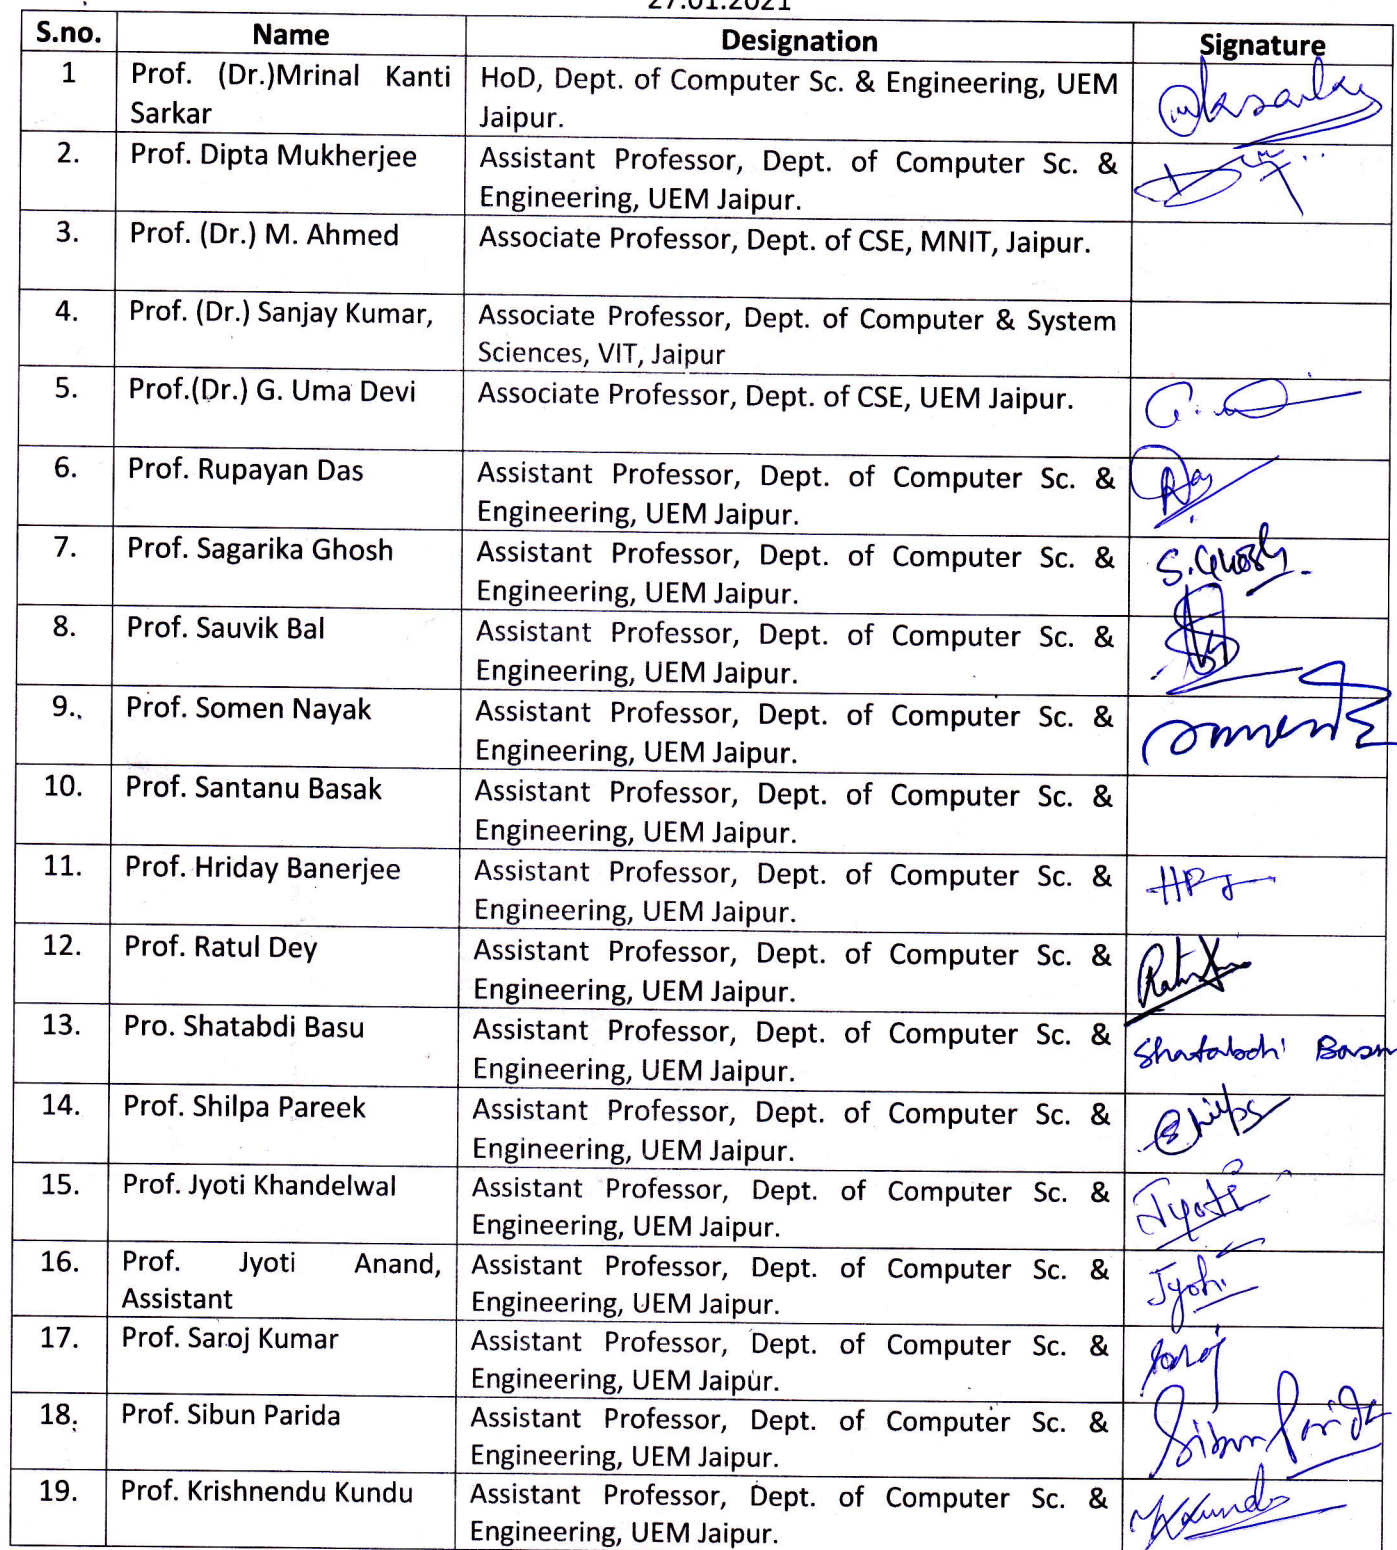 27.01.2021
S.no. Name Designation Signature
1 Prof. (Dr.)Mrinal Kanti HoD, Dept. of Computer Sc. & Engineering, UEM
Sarkar Jaipur.
2. Prof. Dipta Mukherjee Assistant Professor, Dept. of Computer Sc. &
Engineering, UEM Jaipur.
3. Prof. (Dr.) M. Ahmed Associate Professor, Dept. of CSE, MNIT, Jaipur.
4. Prof. (Dr.) Sanjay Kumar, Associate Professor, Dept. of Computer & System
Sciences, VIT, Jaipur
5. Prof.(Dr.) G. Uma Devi Associate Professor, Dept. of CSE, UEM Jaipur.
6. Prof. Rupayan Das Assistant Professor, Dept. of Computer Sc. &
Engineering, UEM Jaipur.
7. Prof. Sagarika Ghosh Assistant Professor, Dept. of Computer Sc. & S. Ghosh
Engineering, UEM Jaipur.
8. Prof. Sauvik Bal Assistant Professor, Dept. of Computer Sc. &
Engineering, UEM Jaipur.
9. Prof. Somen Nayak Assistant Professor, Dept. of Computer Sc. &
Engineering, UEM Jaipur.
10. Prof. Santanu Basak Assistant Professor, Dept. of Computer Sc. &
Engineering, UEM Jaipur.
11. Prof. Hriday Banerjee Assistant Professor, Dept. of Computer Sc. &
Engineering, UEM Jaipur.
12. Prof. Ratul Dey Assistant Professor, Dept. of Computer Sc. &
Engineering, UEM Jaipur.
13. Pro. Shatabdi Basu Assistant Professor, Dept. of Computer Sc. & Shatabdi Basu
Engineering, UEM Jaipur.
14. Prof. Shilpa Pareek Assistant Professor, Dept. of Computer Sc. &
Engineering, UEM Jaipur.
15. Prof. Jyoti Khandelwal Assistant Professor, Dept. of Computer Sc. & Jyoti
Engineering, UEM Jaipur.
16. Prof. Jyoti Anand, Assistant Professor, Dept. of Computer Sc. & Jyoti
Assistant Engineering, UEM Jaipur.
17. Prof. Saroj Kumar Assistant Professor, Dept. of Computer Sc. & Saroj
Engineering, UEM Jaipur.
18. Prof. Sibun Parida Assistant Professor, Dept. of Computer Sc. & Sibun Parida
Engineering, UEM Jaipur.
19. Prof. Krishnendu Kundu Assistant Professor, Dept. of Computer Sc. & KKundu
Engineering, UEM Jaipur.